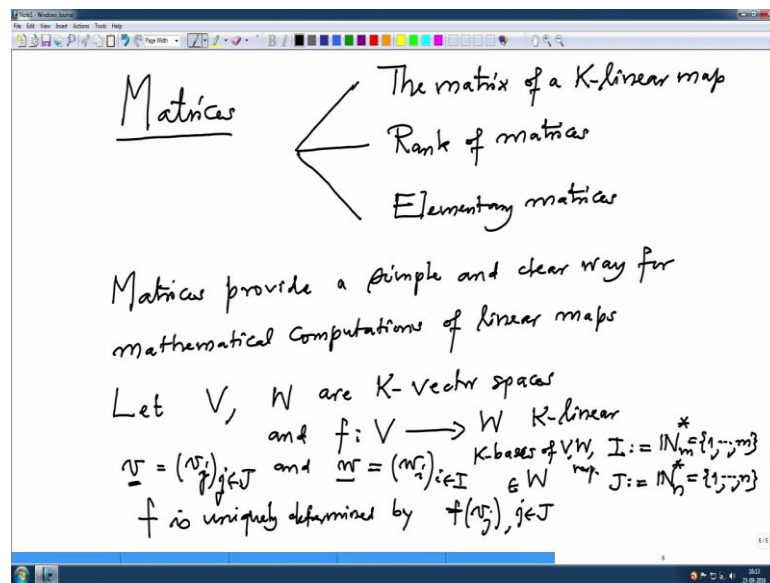 Note1 - Windows Journal
File Edit View Insert Actions Tools Help
Page Width
Matrices
The matrix of a K-linear map
Rank of matrices
Elementary matrices
Matrices provide a simple and clear way for
mathematical computations of linear maps
Let V, W are K-vector spaces
and f: V ⟶ W K-linear
v = (v_j)_{j∈J} and w = (w_i)_{i∈I} K-bases of V, W, resp. I := ℕ*_m = {1,…,m}
∈ W J := ℕ*_n = {1,…,n}
f is uniquely determined by f(v_j), j∈J
5/5
6
16:13
23-09-201